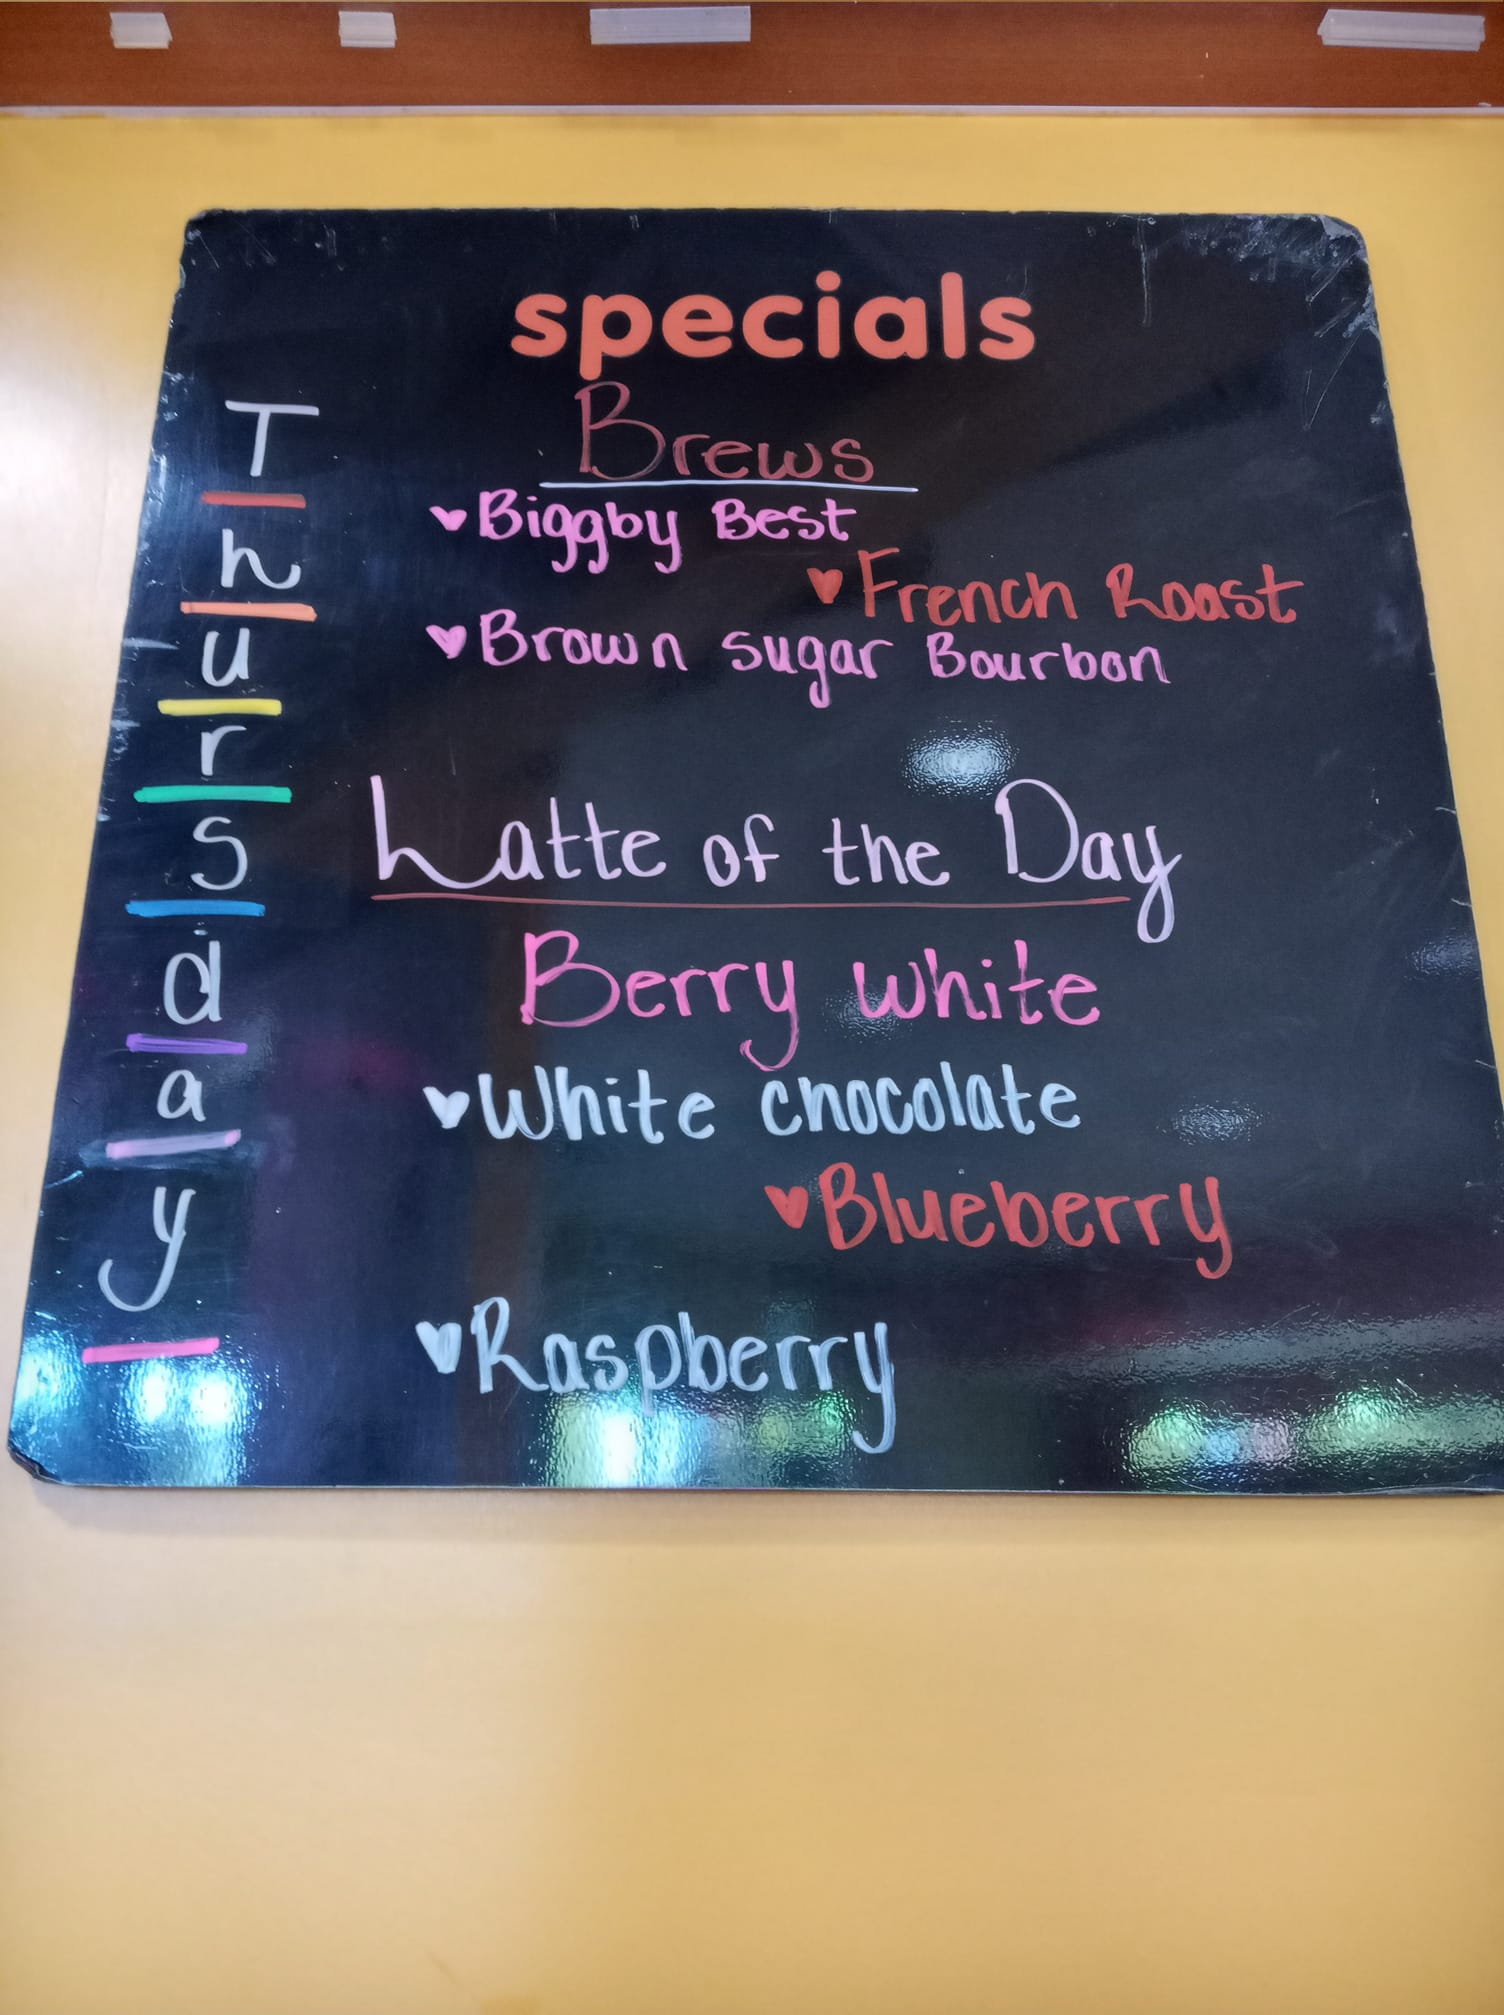 specials
Brews
♥Biggby Best
♥French Roast
♥Brown sugar Bourbon
Latte of the Day
Berry white
♥White chocolate
♥Blueberry
♥Raspberry
T
h
u
r
s
d
a
y